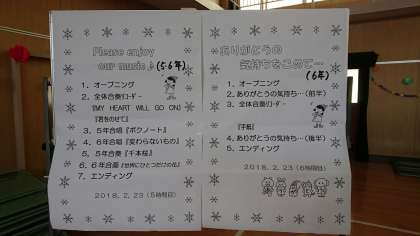 Please enjoy
our music♪(5・6年)
1、オープニング
2、全体合奏リコーダー
『MY HEART WILL GO ON』
『君をのせて』
3、5年合唱『ボクノート』
4、6年合唱『変わらないもの』
5、5年合奏『千本桜』
6、6年合奏『世界にひとつだけの花』
7、エンディング
2018.2.23(5時間目)
ありがとうの
気持ちをこめて…
(6年)
1、オープニング
2、ありがとうの気持ち…(前半)
3、全体合奏リコーダー
『手紙』
4、ありがとうの気持ち…(後半)
5、エンディング
2018.2.23(6時間目)